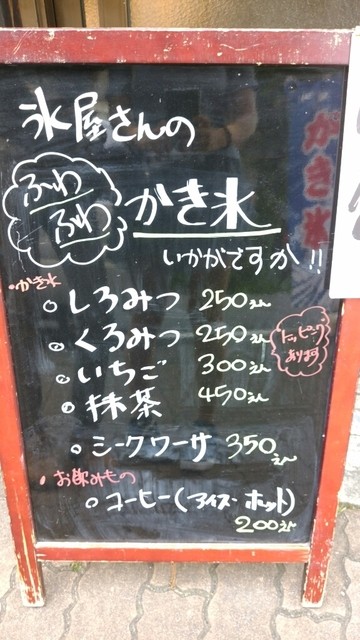 氷屋さんの
ふわ
ふわ
かき氷
いかがですか!!
・かき氷
しろみつ 250えん
くろみつ 250えん
いちご 300えん
抹茶 450えん
トッピング
あります
シークワーサ 350えん
・お飲みもの
コーヒー(アイス・ホット)
200えん
かき氷